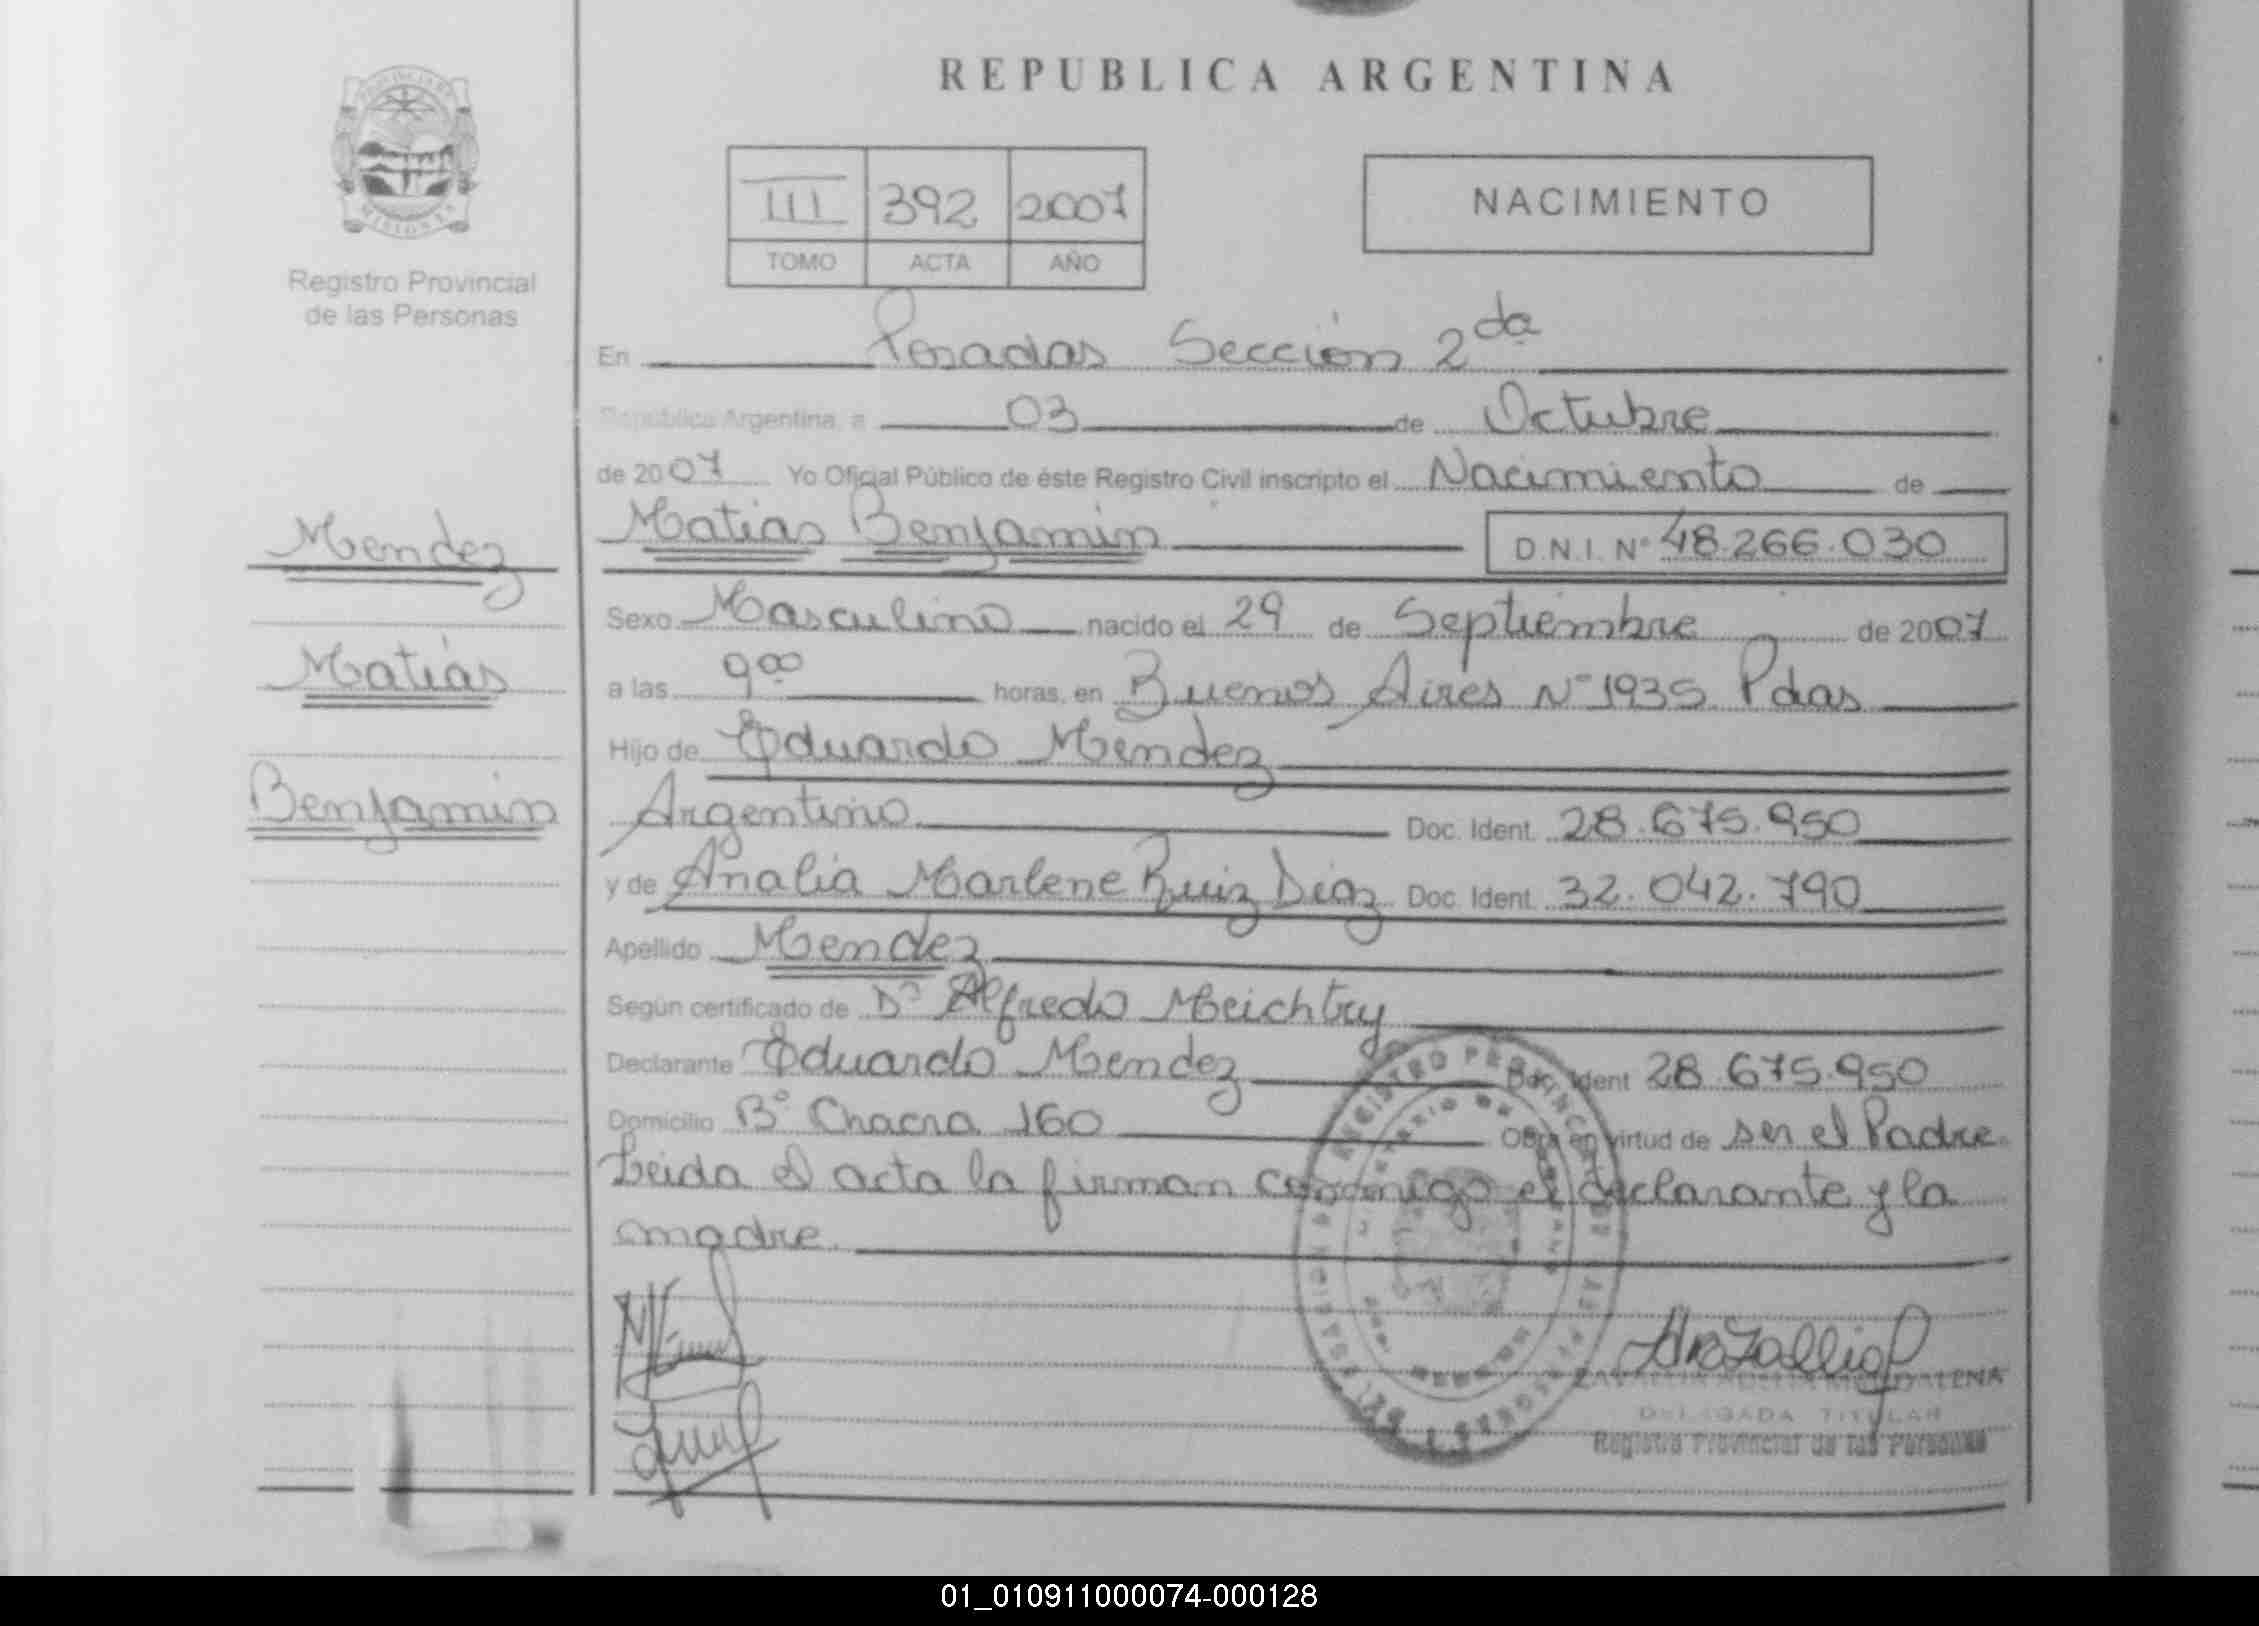 REPUBLICA ARGENTINA
PROVINCIA DE
MISIONES
Registro Provincial
de las Personas
III 392 2007
TOMO ACTA AÑO
NACIMIENTO
En Posadas Sección 2da
República Argentina, a 03 de Octubre
de 2007 Yo Oficial Público de éste Registro Civil inscripto el Nacimiento de
Mendez
Matias Benjamin D.N.I. Nº 48.266.030
Sexo Masculino nacido el 29 de Septiembre de 2007
Matias
a las 9 00 horas, en Buenos Aires Nº 1935 Pdas
Hijo de Eduardo Mendez
Benjamin
Argentino Doc. Ident. 28.675.950
y de Analia Marlene Ruiz Diaz Doc. Ident. 32.042.790
Apellido Mendez
Según certificado de Dº Alfredo Meichtry
Declarante Eduardo Mendez Doc. Ident 28.675.950
Domicilio Bº Chacra 160 Obra en virtud de ser el Padre
Leida el acta la firman conmigo el declarante y la
madre.
REGISTRO PROVINCIAL DE LAS PERSONAS
DELEGADA TITULAR
Registro Provincial de las Personas
01_010911000074-000128